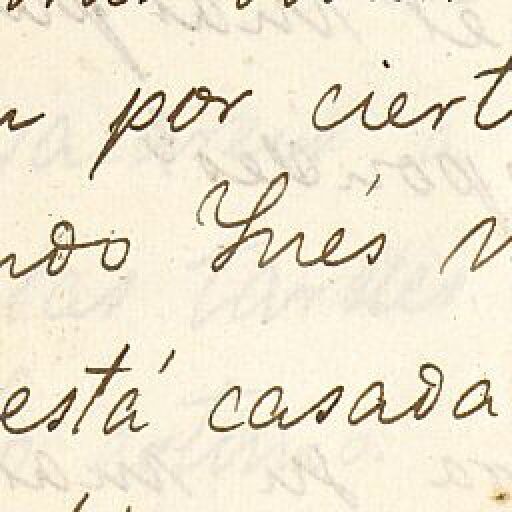 por ciert
ndo Inés
está casada